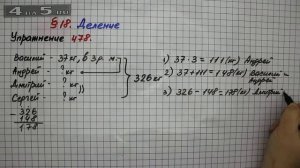 4 на 5.ру
§18. Деление
Упражнение 478.
Василий - 37 кг, в 3 р. м.
Андрей - ? кг
Дмитрий - ? кг
Сергей - ? кг
326 кг
- 326
148
178
1) 37·3 = 111 (кг) Андрей
2) 37+111 = 148 (кг) Василий и Андрей
3) 326-148 = 178 (кг) Дмитрий